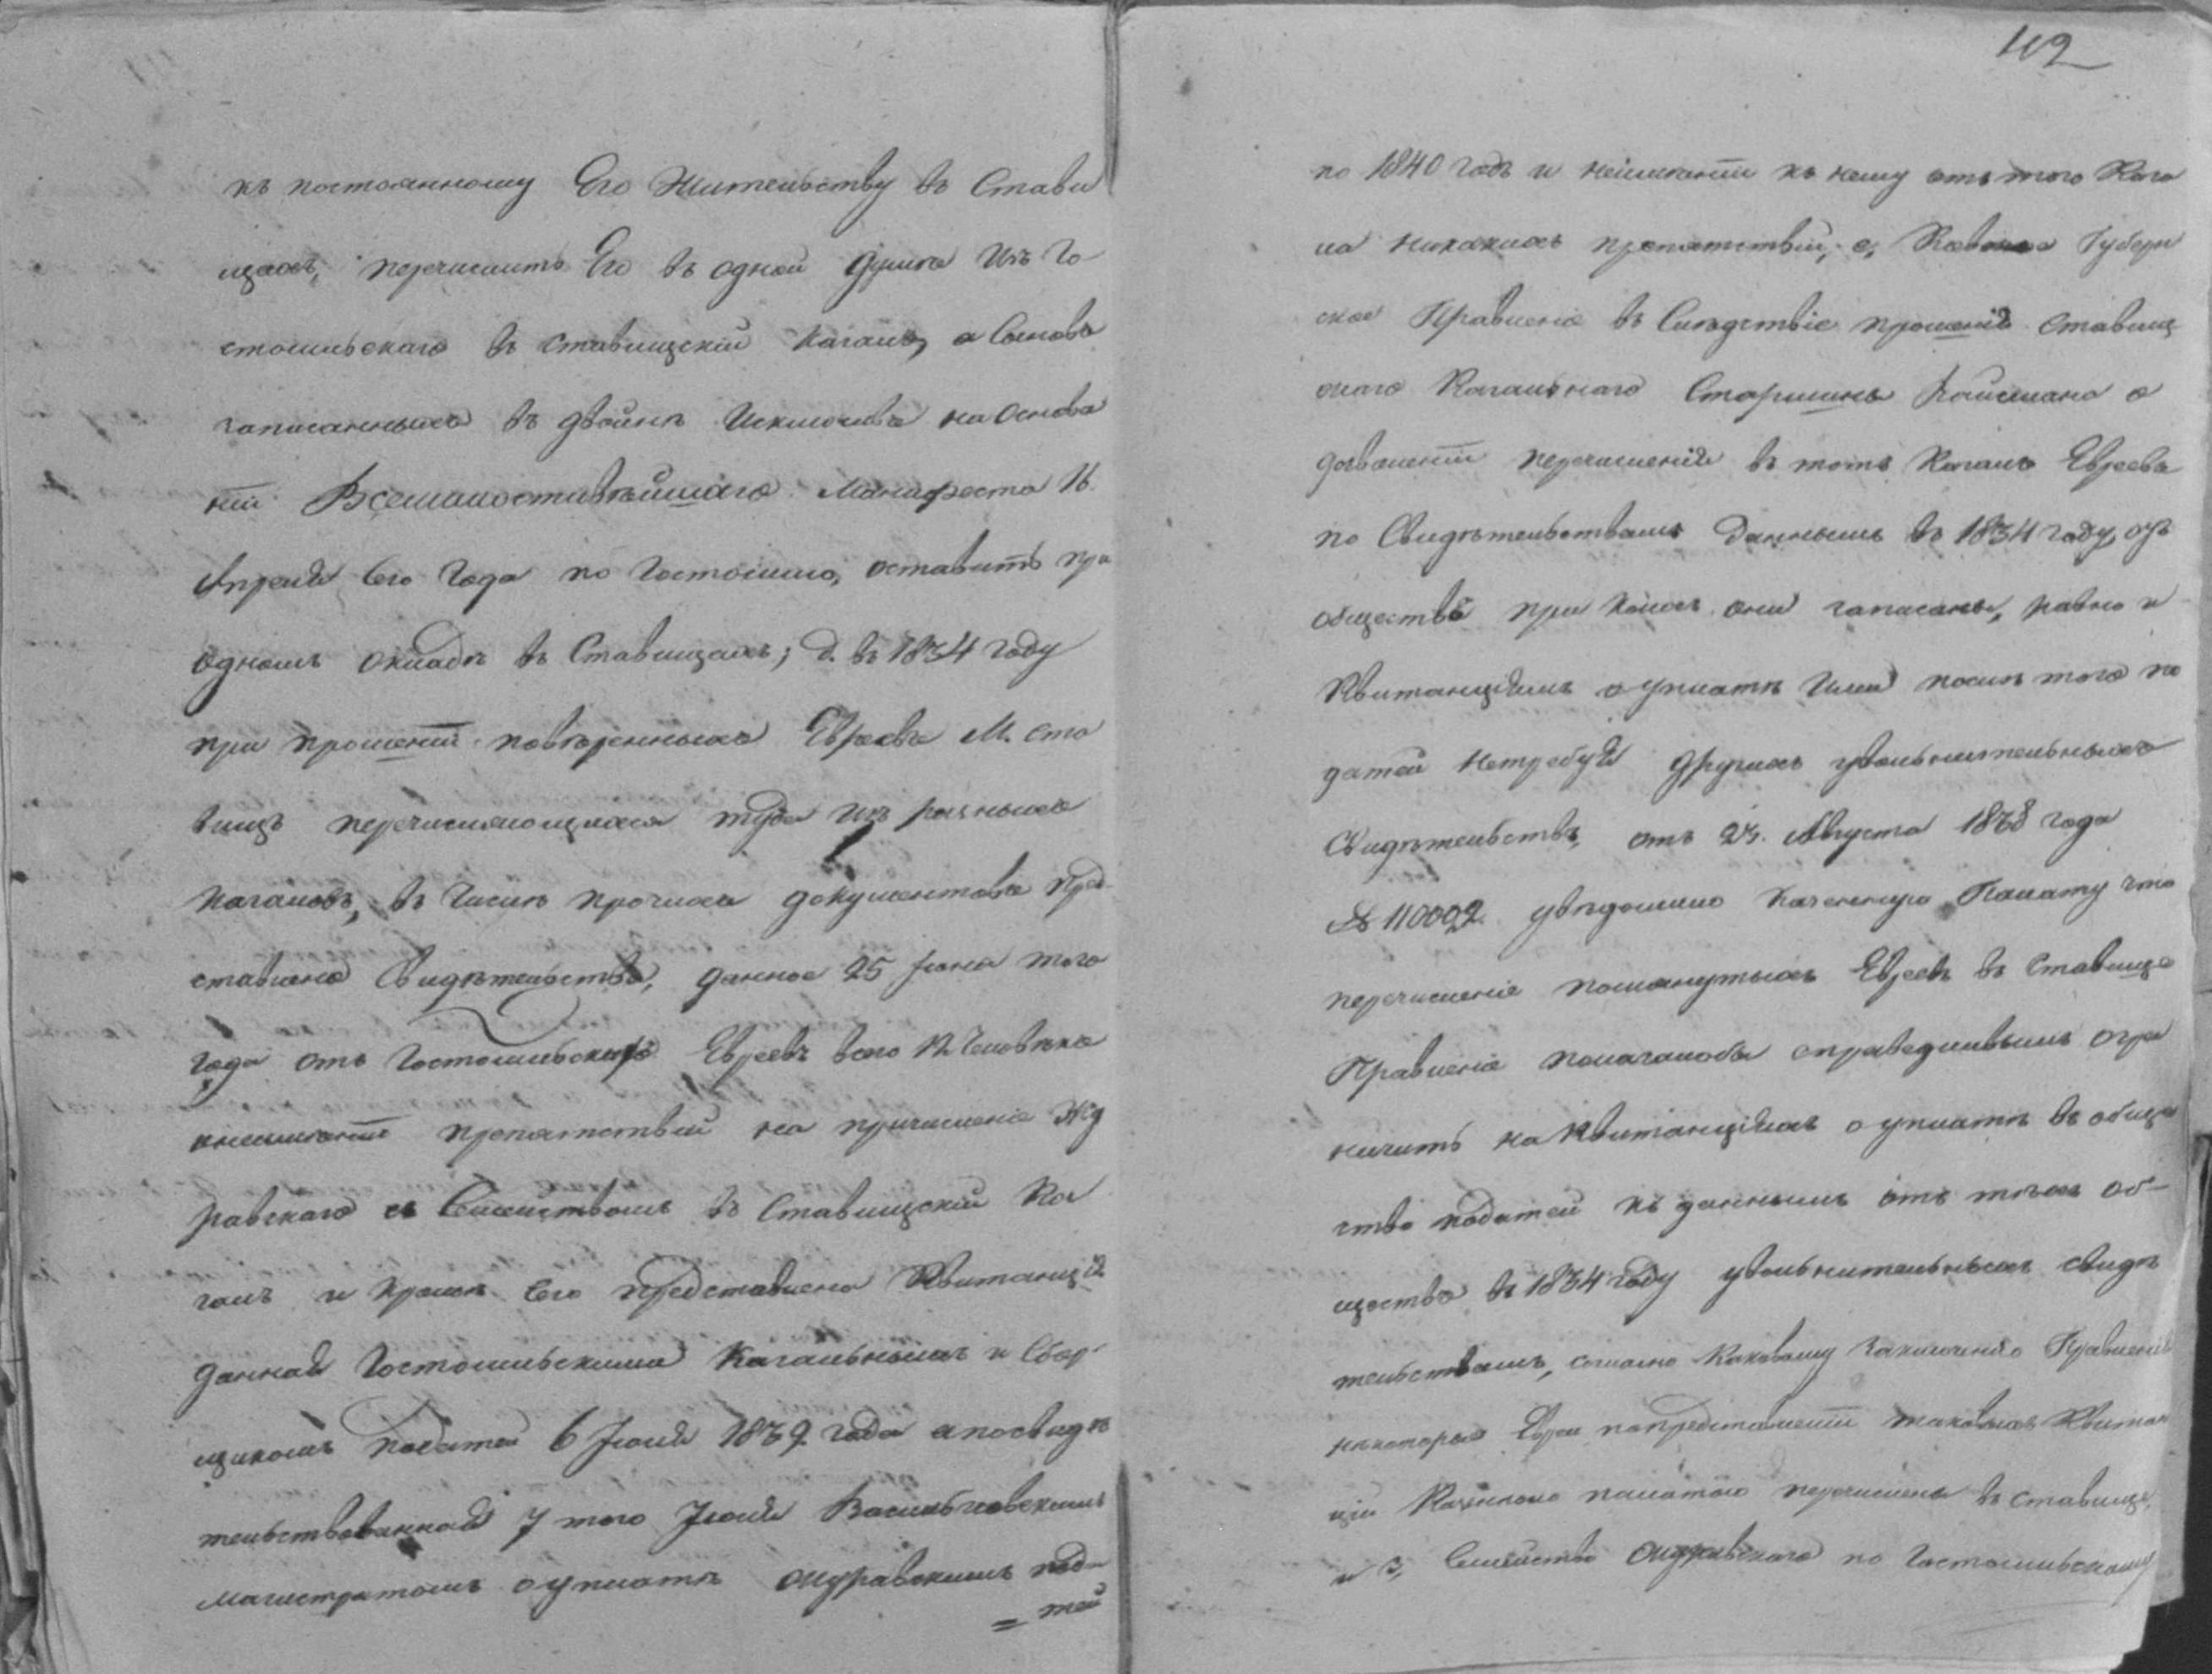 къ постоянному Его Жительству въ Стави
щахъ, перечислить Его въ одной душѣ изъ Го
стомльскаго въ Ставищскій Кагалъ, а Сыновъ
записанныхъ въ двойнѣ Исключивъ на основа
ніи Всемилостивѣйшаго Манифеста 16
Апреля Сего Года по Гостомлю, оставить при
одномъ окладѣ въ Ставищахъ; д. въ 1834 году
при прошеніи повѣренныхъ Евреевъ М. Ста
вищъ перечисляющихся туда изъ разныхъ
Кагаловъ, въ числѣ прочихъ документовъ пред
ставлено Свидѣтельство, данное 25 Іюня того
года отъ Гостомльскихъ Евреевъ всего 12 Человѣкъ
онеимѣніи препятствій на причисленіе
равскаго съ Семействомъ въ Ставищскій Ка
галъ и кромѣ Сего представлена Квитанція
данная Гостомльскимъ Кагальнымъ и Сбор
щикомъ податей 6 Іюля 1839 года а посвидѣ
тельствованная 7 того Іюля Васильковскимъ
Магистратомъ о уплатѣ подa
= тей
112
по 1840 годъ и неимѣніи къ нему отъ того Кага
ла никакихъ препятствій; е, Губерн
ское Правленіе въ Слѣдствіе прошенія Ставищ
скаго Кагальнаго Старшины о
дозволеніи перечисленія въ тотъ Кагалъ Евреевъ
по Свидѣтельствамъ даннымъ въ 1834 году, отъ
обществъ при коихъ они записаны, равно и
Квитанціямъ о уплатѣ Ими послѣ того по
датей нетребуя другихъ увольнительныхъ
Свидѣтельствъ, отъ 23. Августа 1838 года
№ 110092. увѣдомило Казенную Палату что
перечисленіе помянутыхъ Евреевъ въ Ставище
Правленіе полагалобы справедливымъ огра
ничить на Квитанціяхъ о уплатѣ въ обще
ство податей къ даннымъ отъ тѣхъ об-
ществъ въ 1834 году увольнительнымъ свидѣ
тельствамъ, согласно каковому заключенію Правленія
нѣкоторые Евреи попредставленіи таковыхъ Квитан
цій Казенною палатою перечислены въ Ставище,
и з, Семейство по Гостомльскому